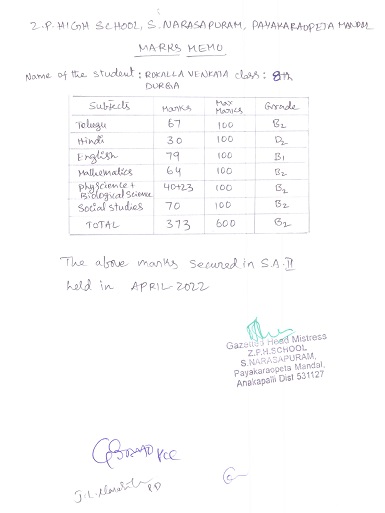 Z.P.HIGH SCHOOL, S.NARASAPURAM, PAYAKARAOPETA MANDAL
MARKS MEMO
Name of the student: ROKALLA VENKATA class: 8th
DURGA
Subjects Marks Max Marks Grade
Telugu 67 100 B2
Hindi 30 100 D2
English 79 100 B1
Mathematics 64 100 B2
Phy Science + Biological Science 40+23 100 B2
Social studies 70 100 B2
TOTAL 373 600 B2
The above marks secured in S.A-II
held in APRIL-2022
Gazetted Head Mistress
Z.P.H.SCHOOL
S.NARASAPURAM,
Payakaraopeta Mandal,
Anakapalli Dist 531127